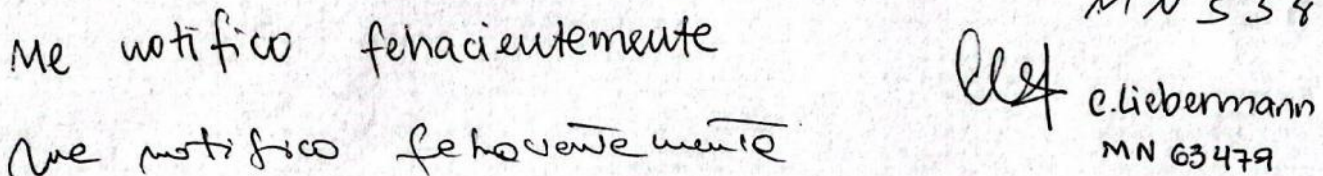 MN 538
Me notifico fehacientemente
C. Liebermann
Me notifico fehacientemente
MN 63479